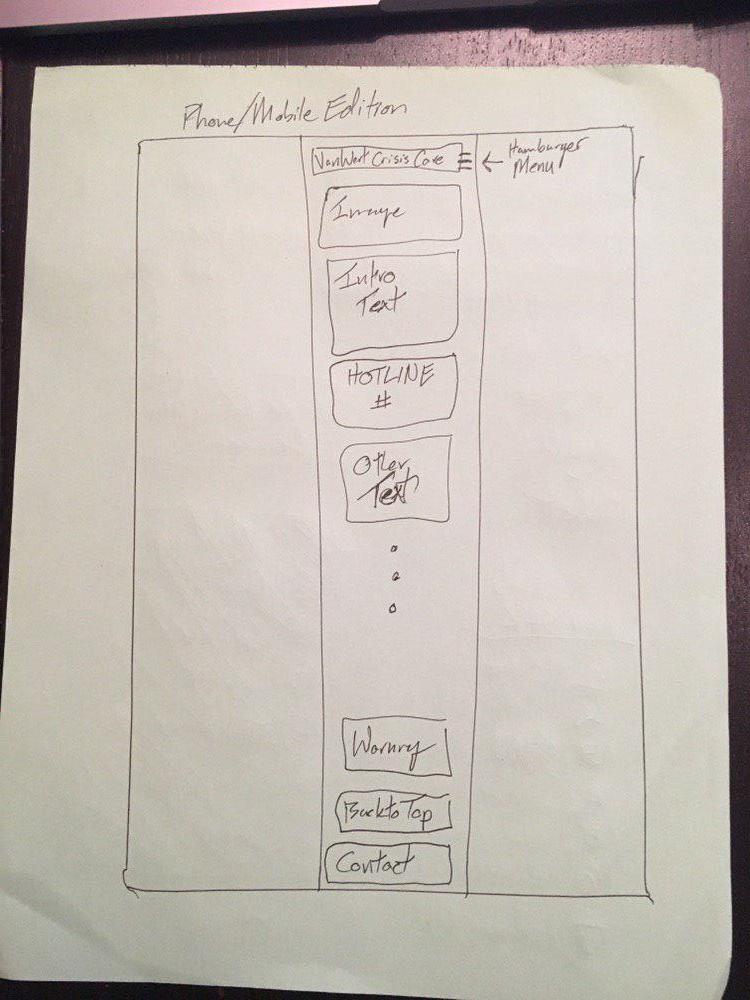 Phone/Mobile Edition
VanWert Crisis Care
Hamburger
Menu
Image
Intro
Text
HOTLINE
#
Other
Text
Warning
Back to Top
Contact